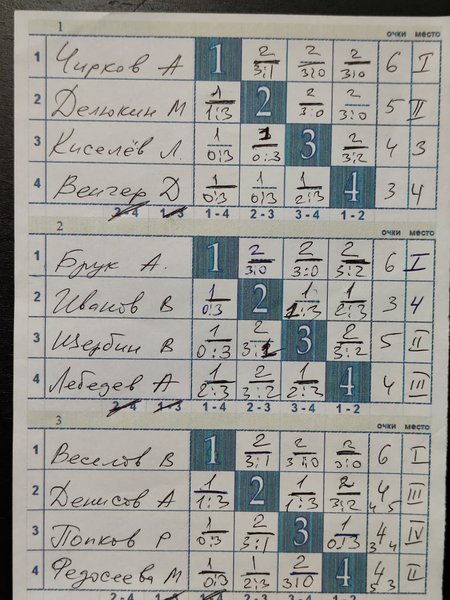 1 очки место
1 Чирков А 1 2 3:1 2 3:0 2 3:0 6 I
2 Делюкин М 1 1:3 2 2 3:0 2 3:0 5 II
3 Киселёв Л. 1 0:3 1 0:3 3 2 3:2 4 3
4 Венгер Д 1 0:3 1 0:3 1 2:3 4 3 4
2-4 1-3 1-4 2-3 3-4 1-2
2 очки место
1 Брук А. 1 2 3:0 2 3:0 2 3:2 6 I
2 Иванов В 1 0:3 2 1 1:3 1 2:3 3 4
3 Щербин В 1 0:3 2 3:1 3 2 3:2 5 II
4 Лебедев А 1 2:3 2 3:2 1 2:3 4 4 III
2-4 1-3 1-4 2-3 3-4 1-2
3 очки место
1 Веселов В 1 2 3:1 2 3:0 2 3:0 6 I
2 Денисов А 1 1:3 2 1 1:3 2 3:2 4 4 5 III
3 Попков Р 1 0:3 2 3:1 3 1 0:3 4 3 4 IV
4 Федосеева М 1 0:3 1 2:3 2 3:0 4 4 5 3 II
2-4 1-4 2-3 3-4 1-2